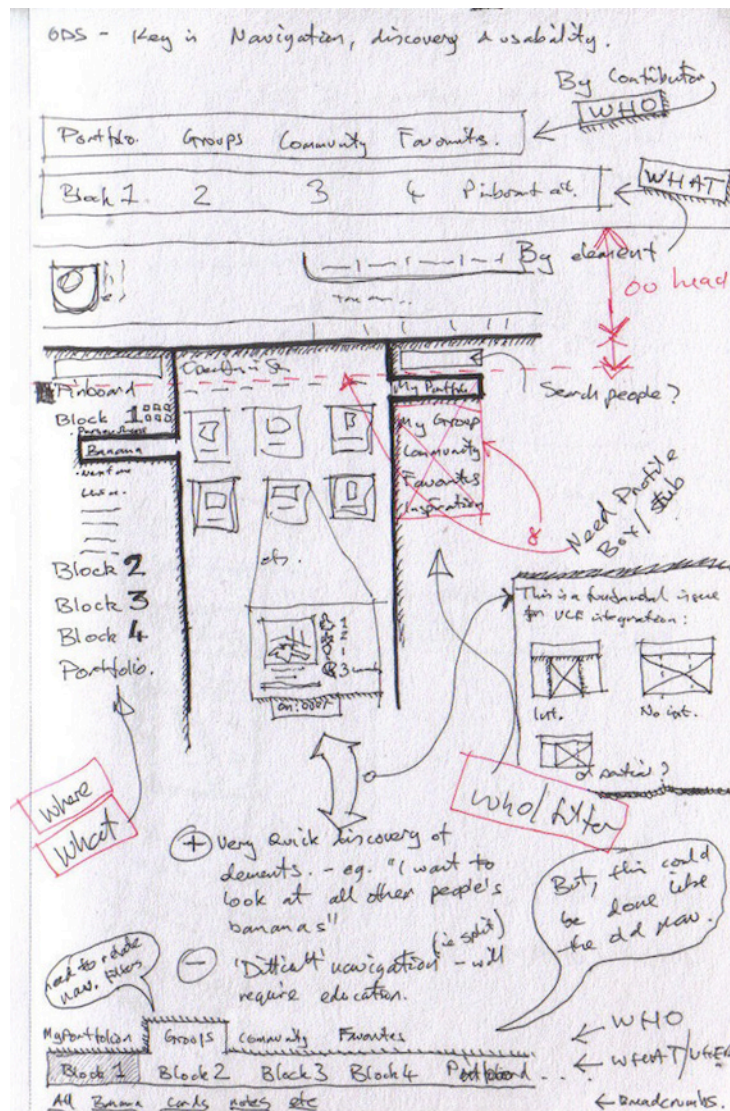 ODS - Key is Navigation, discovery & usability.
By Contributor
WHO
Portfolio. Groups Community Favourites.
Block 1 2 3 4 Pinboard etc.
WHAT
By element
oo head
Search people?
Pinboard
My Portfolio
Block 1
Banana
My Group
Community
Favourites
Inspiration
Need Profile
Box / stub
etc.
Block 2
Block 3
Block 4
Portfolio.
This is a fundamental issue
for integration:
Int.
No int.
or partial?
Where
What
Who/filter
+ Very quick discovery of
elements. - eg. "I want to
look at all other people's
bananas"
(ie split)
- 'Difficult' navigation - will
require education.
But, this could
be done like
the old nav.
need to relate
nav. filters
My Portfolio Groups Community Favourites
← WHO
Block 1 Block 2 Block 3 Block 4
← WHAT/WHERE
All Banana cards notes etc
← Breadcrumbs.